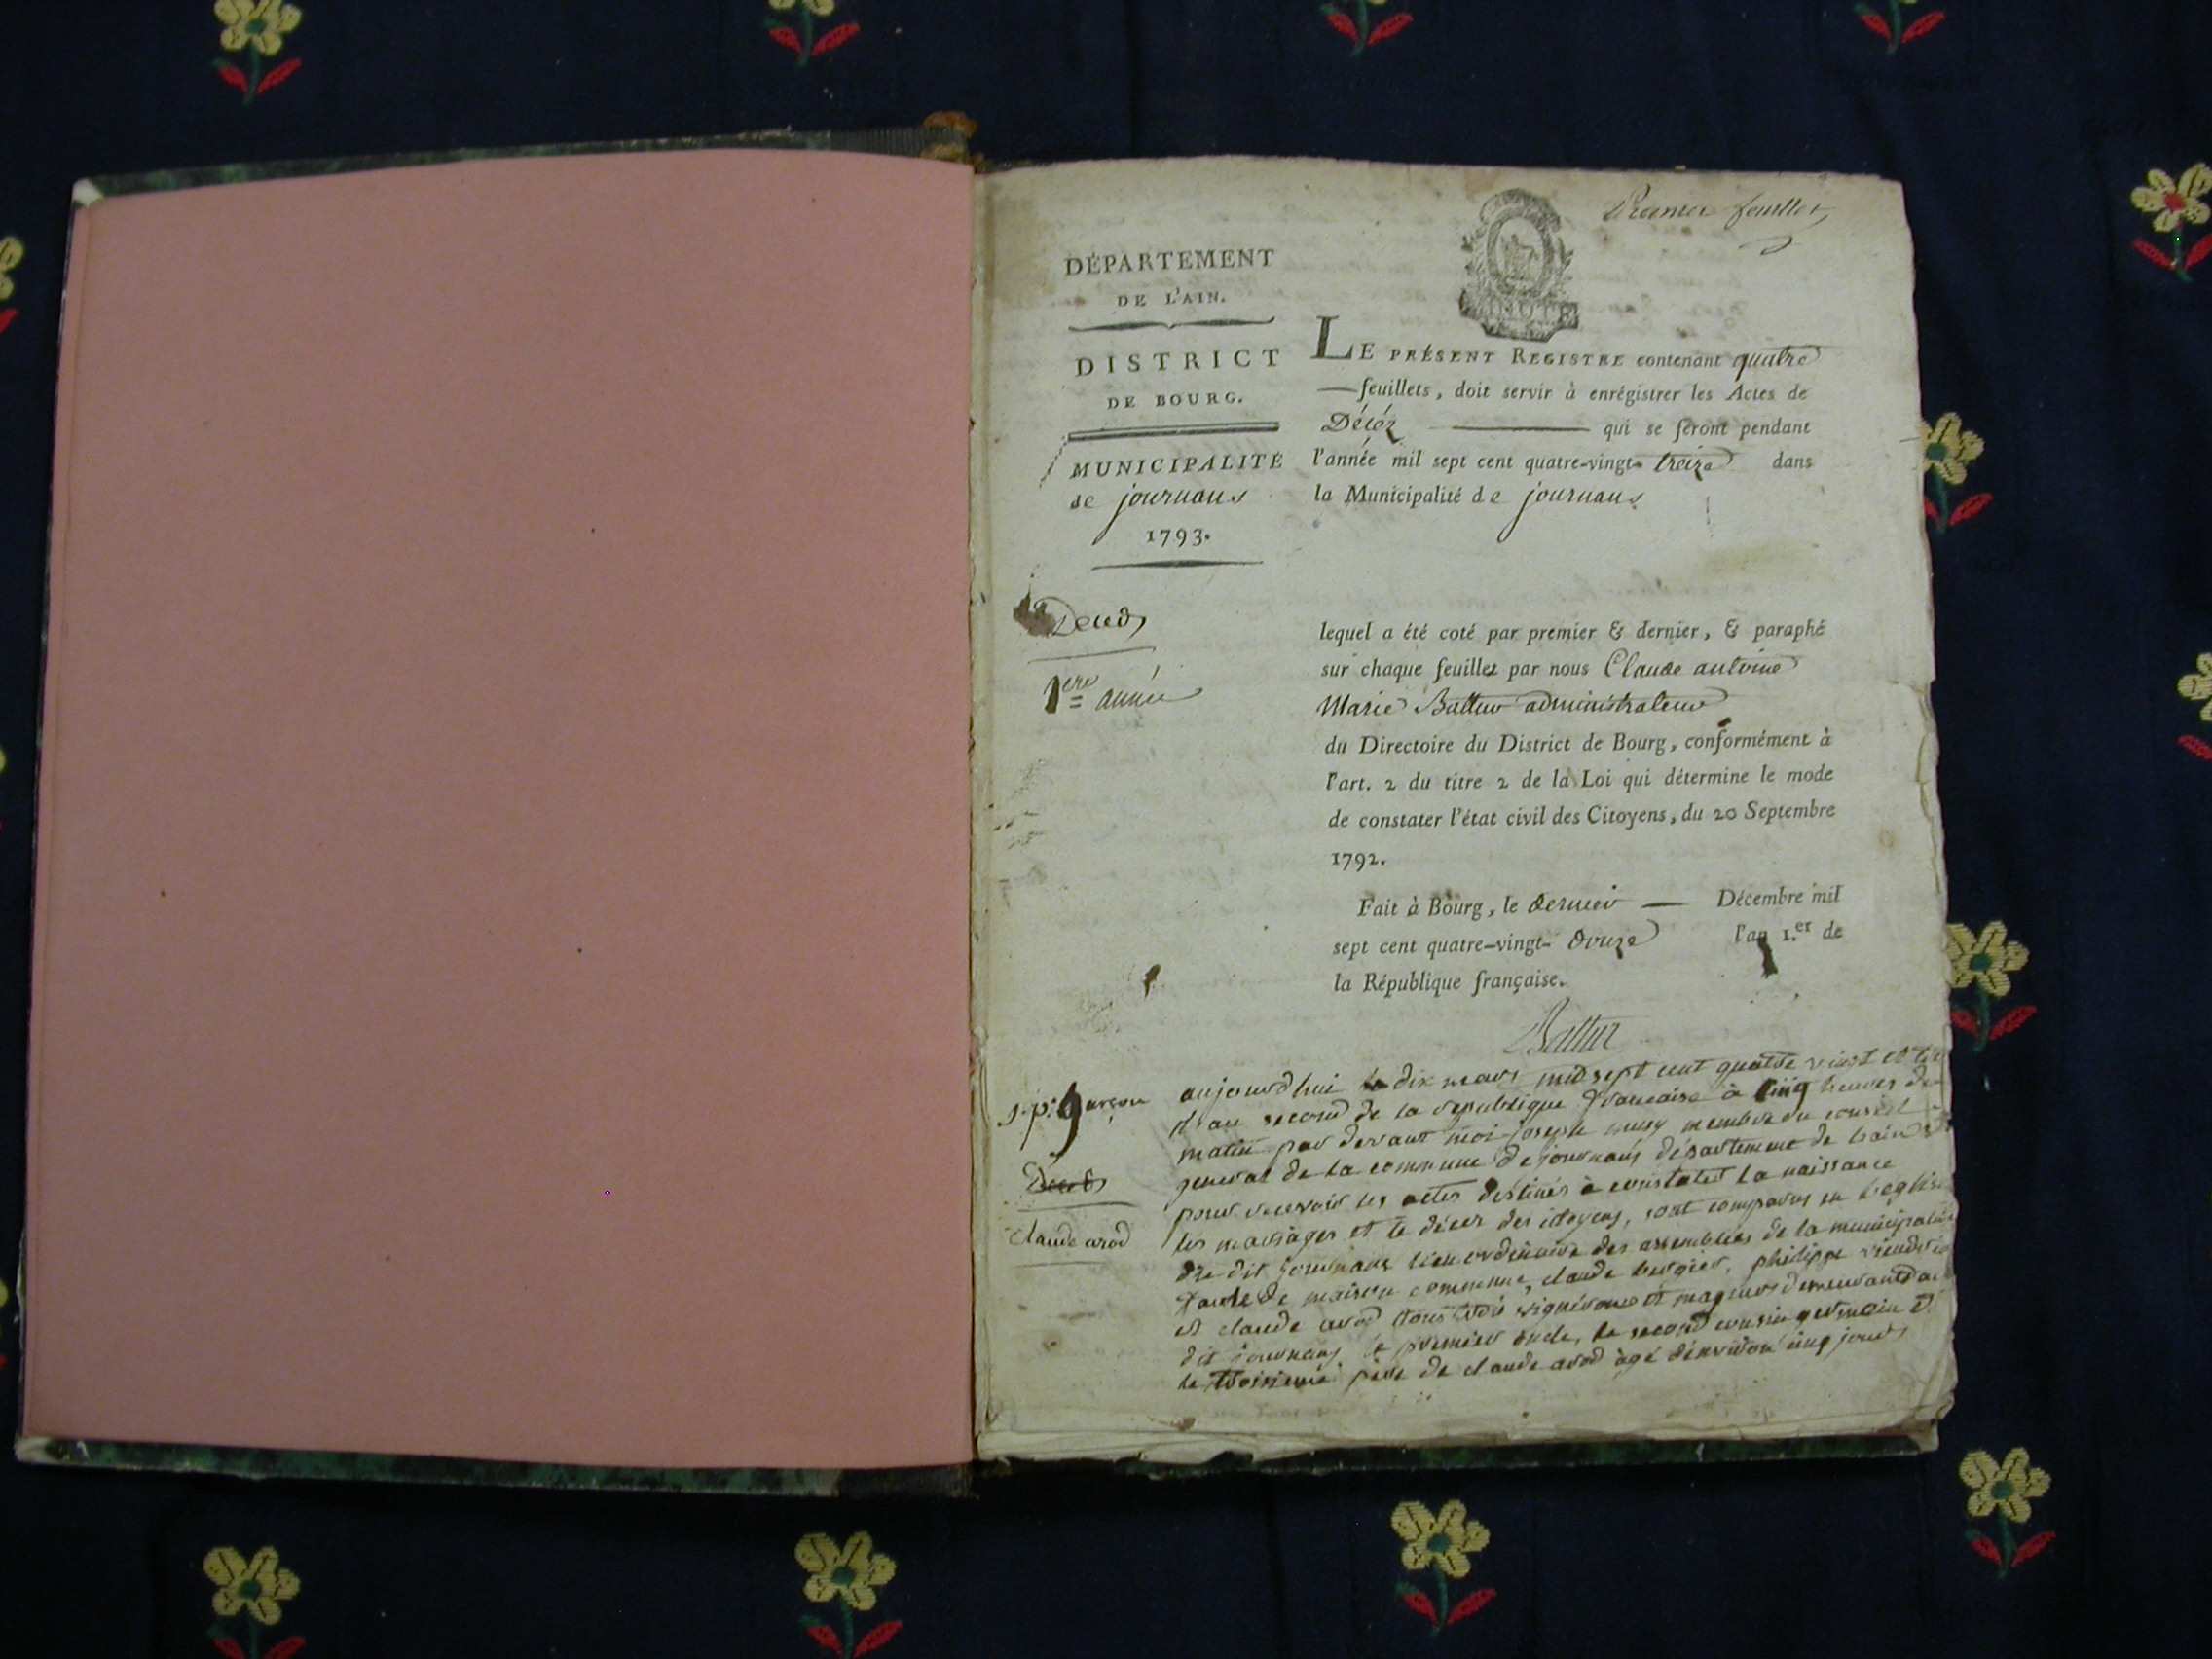 Premier feuillet
DÉPARTEMENT
DE L'AIN.
DISTRICT
DE BOURG.
MUNICIPALITÉ
de journans
1793.
LE PRÉSENT REGISTRE contenant quatre
feuillets, doit servir à enrégistrer les Actes de
Décéz qui se feront pendant
l'année mil sept cent quatre-vingt- treize dans
la Municipalité de journans
Deces
1ere année
lequel a été coté par premier & dernier, & paraphé
sur chaque feuillet par nous Claude antoine
Marie Battur administrateur
du Directoire du District de Bourg, conformément à
l'art. 2 du titre 2 de la Loi qui détermine le mode
de constater l'état civil des Citoyens, du 20 Septembre
1792.
Fait à Bourg, le dernier Décembre mil
sept cent quatre-vingt- douze l'an 1.er de
la République française.
Battur
garçon
Deces
claude arod
aujourdhui le dix mars mil sept cent quatre vingt et
l'an second de la republique francaise à cinq heures du
matin par devant moi joseph musy membre du conseil
general de la commune de journans département de lain
pour recevoir les actes destinés à constater la naissance
les mariages et le décer des citoyens, sont comparus en leglise
du dit journans lieu ordinaire des assemblées de la municipalité
faute de maison commune, claude bergier, philippe
et claude arod tous vignerons et demeurant
dit journans le premier oncle, le second cousin germain et
le troisieme père de claude arod àgé d'environ cinq jours